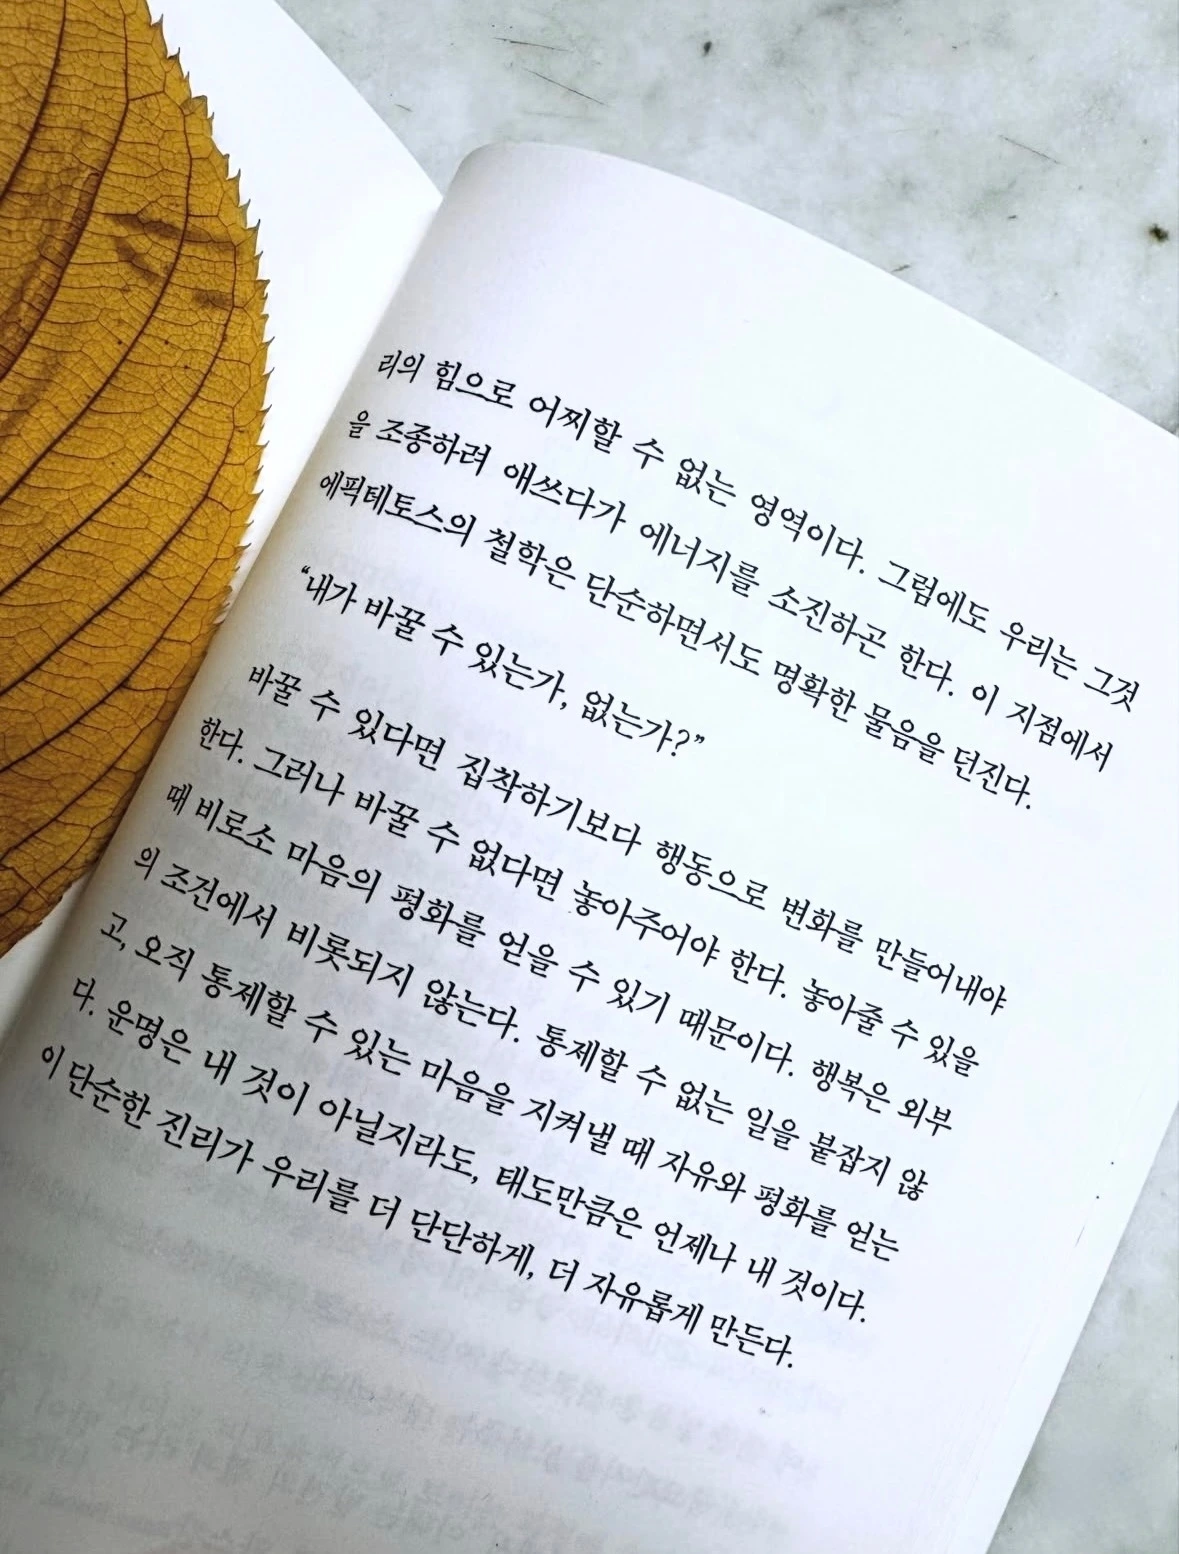 리의 힘으로 어찌할 수 없는 영역이다. 그럼에도 우리는 그것
을 조종하려 애쓰다가 에너지를 소진하곤 한다. 이 지점에서
에픽테토스의 철학은 단순하면서도 명확한 물음을 던진다.
“내가 바꿀 수 있는가, 없는가?”
바꿀 수 있다면 집착하기보다 행동으로 변화를 만들어내야
한다. 그러나 바꿀 수 없다면 놓아주어야 한다. 놓아줄 수 있을
때 비로소 마음의 평화를 얻을 수 있기 때문이다. 행복은 외부
의 조건에서 비롯되지 않는다. 통제할 수 없는 일을 붙잡지 않
고, 오직 통제할 수 있는 마음을 지켜낼 때 자유와 평화를 얻는
다. 운명은 내 것이 아닐지라도, 태도만큼은 언제나 내 것이다.
이 단순한 진리가 우리를 더 단단하게, 더 자유롭게 만든다.